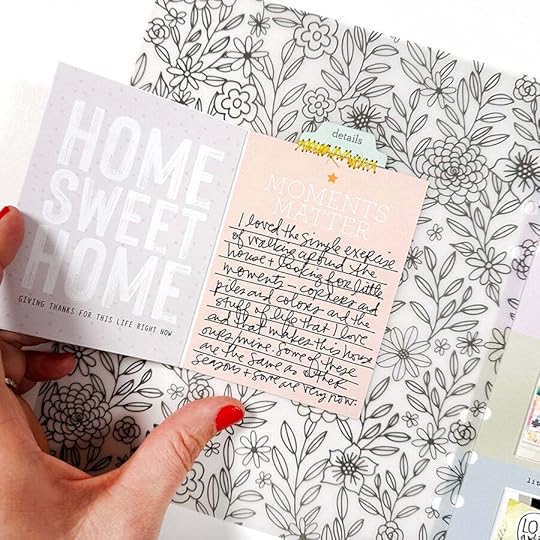 HOME
SWEET
HOME
GIVING THANKS FOR THIS LIFE RIGHT NOW
details
MOMENTS
MATTER
I loved the simple exercise
of walking around the
house + looking for little
moments – corners and
piles and colors and the
stuff of life that I love
and that makes this house
ours, mine. Some of these
are the same as other
seasons + some are very now.